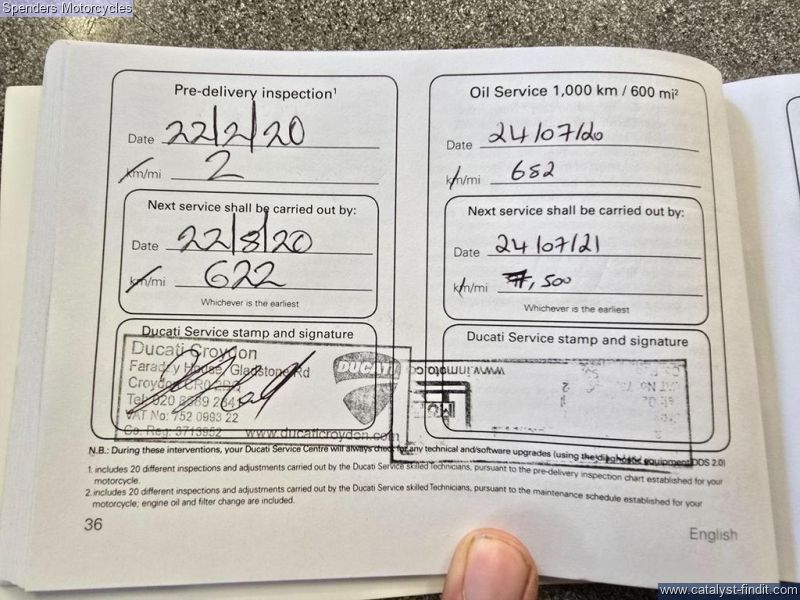 Spenders Motorcycles
Pre-delivery inspection¹
Date 22/2/20
km/mi 2
Next service shall be carried out by:
Date 22/8/20
km/mi 622
Whichever is the earliest
Ducati Service stamp and signature
Ducati Croydon
Faraday House, Gladstone Rd
Croydon
Tel: 020
VAT No: 752 0993 22
Co. Reg: 3713952 www.ducaticroydon.com
DUCATI
Oil Service 1,000 km / 600 mi²
Date 24/07/20
km/mi 652
Next service shall be carried out by:
Date 24/07/21
km/mi , 500
Whichever is the earliest
Ducati Service stamp and signature
N.B.: During these interventions, your Ducati Service Centre will always check for any technical and/software upgrades (using the diagnostic equipment DDS 2.0)
1. includes 20 different inspections and adjustments carried out by the Ducati Service skilled Technicians, pursuant to the pre-delivery inspection chart established for your
motorcycle.
2. includes 20 different inspections and adjustments carried out by the Ducati Service skilled Technicians, pursuant to the maintenance schedule established for your
motorcycle; engine oil and filter change are included.
36
English
www.catalyst-findit.com